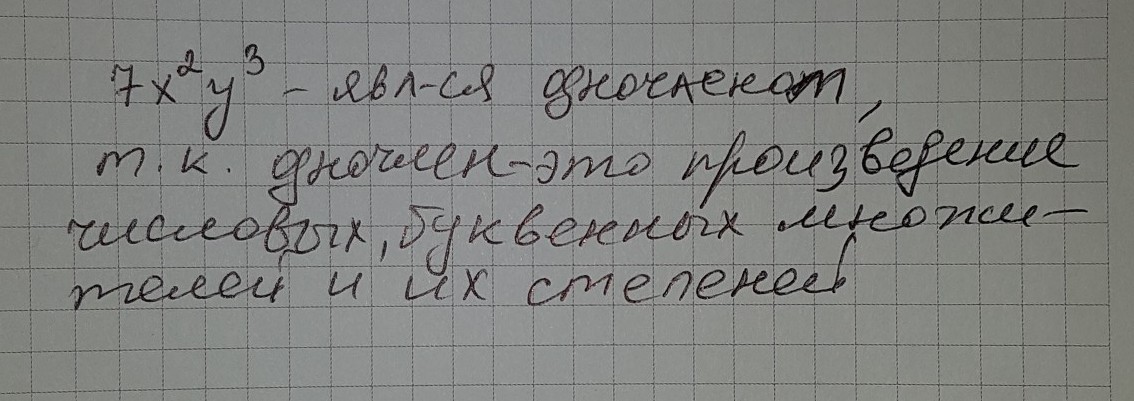 7x²y³ - явл-ся одночленом,
т.к. одночлен-это произведение
числовых, буквенных множи-
телей и их степеней